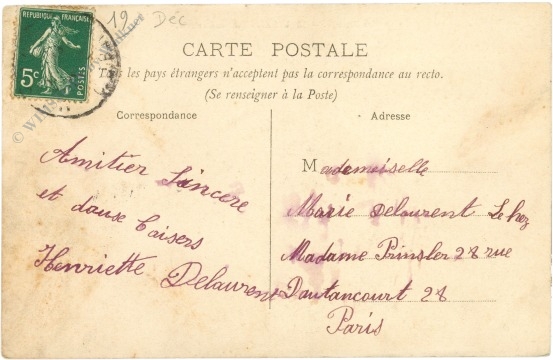 19 Déc
REPUBLIQUE FRANÇAISE
5c
POSTES
CARTE POSTALE
Tous les pays étrangers n'acceptent pas la correspondance au recto.
(Se renseigner à la Poste)
Correspondance
Amitier Sincere
et doux baisers
Henriette Delaurent
Adresse
Mademoiselle
Marie Delaurent Chez
Madame Prinsler 28 rue
Dautancourt 28
Paris